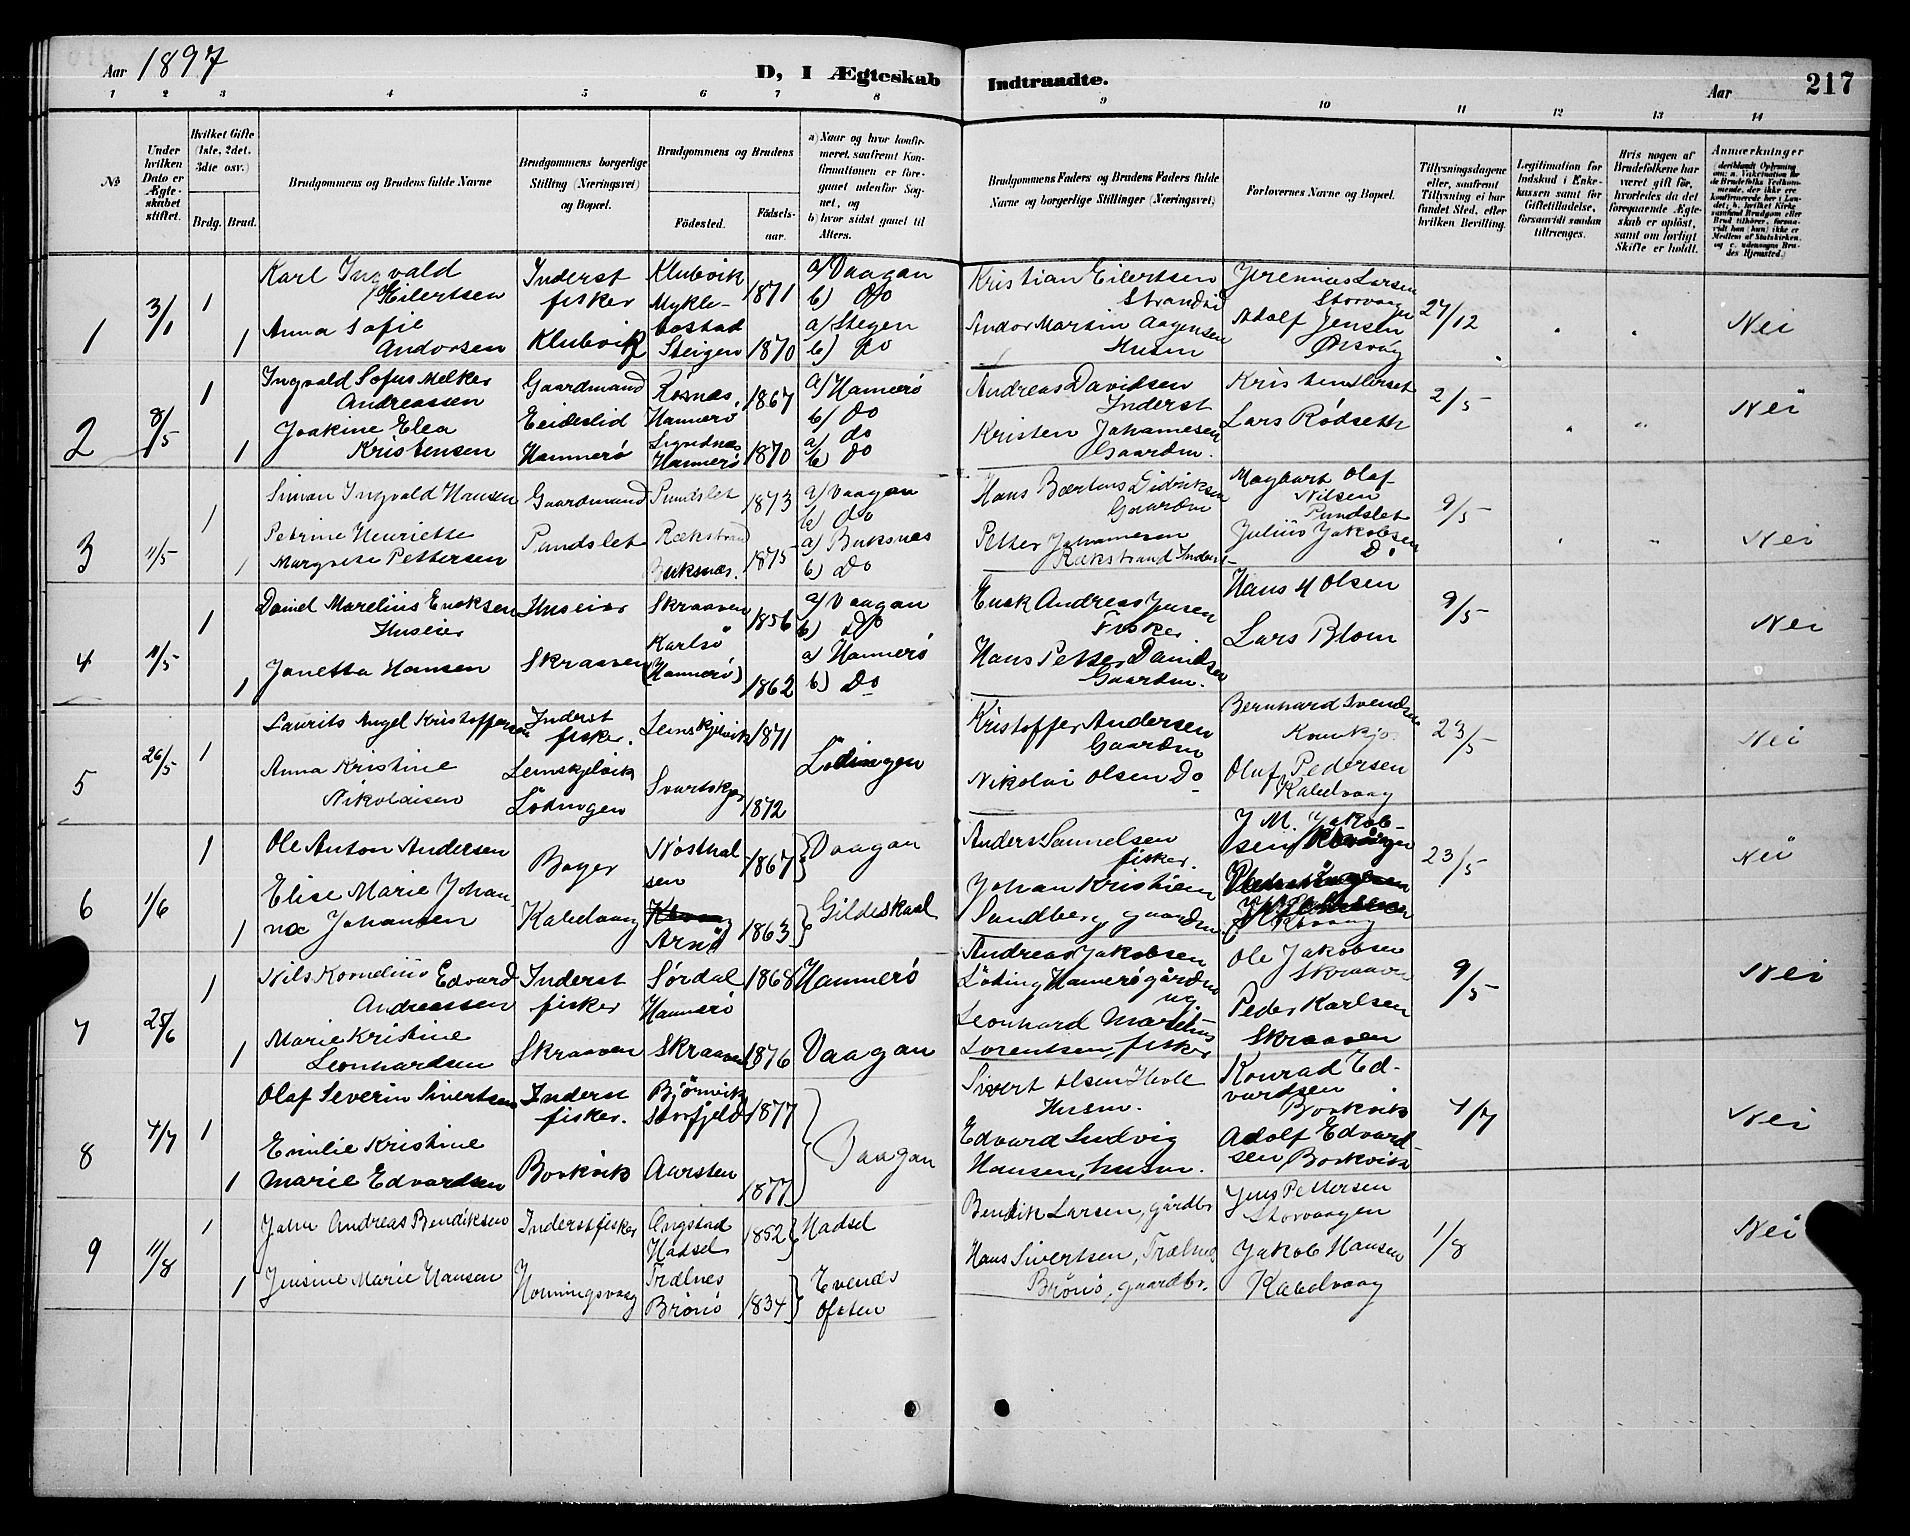 Aar 1897
D, I Ægteskab Indtraadte.
Aar
217
1 2 3 4 5 6 7 8 9 10 11 12 13 14
№
Under hvilken Dato er Ægteskabet stiftet.
Hvilket Gifte (1ste, 2det, 3die osv.)
Brdg. Brud.
Brudgommens og Brudens fulde Navne
Brudgommens borgerlige Stilling (Næringsvei) og Bopæl.
Brudgommens og Brudens
Fødested.
Fødselsaar.
a) Naar og hvor konfirmeret, saafremt Konfirmationen er foregaaet udenfor Sognet, og
b) hvor sidst gaaet til Alters.
Brudgommens Faders og Brudens Faders fulde Navne og borgerlige Stillinger (Næringsvei)
Forlovernes Navne og Bopæl.
Tillysningsdagene eller, saafremt Tillysning ei har fundet Sted, efter hvilken Bevilling.
Legitimation for Indskud i Enkekassen samt for Giftetilladelse, forsaavidt saadan tiltrænges.
Hvis nogen af Brudefolkene har været gift før, hvorledes da det foregaaende Ægteskab er opløst, samt om lovligt Skifte er holdt.
Anmærkninger
1 3/1 1
Karl Ingvald
Eilertsen
Inderst
fisker
Klubvik
Mykle-
bostad
1871
a) Vaagan
b) Do
Kristian Eilertsen
Jeremias Larsen
Storvaagen
27/12
Nei
1
Anna Sofie
Andorsen
Klubvik
Steigen
1870
a) Stegen
b) Do
Andor Martin Aagensen
Husm
Adolf Jensen
Ørsvåg
2 8/5 1
Ingvald Sofus Melker
Andreassen
Gaardmand
Eideslid
Hammerø
Rosnæs,
Hammerø
1867
a) Hamerø
b) Do
Andreas Davidsen
Inderst
2/5
Nei
1
Joakine Elea
Kristensen
Hammerø
1870
a) do
b) Do
Kristen Johannesen
Gaardm.
Lars Rødseth
3 11/5 1
Simon Ingvald Hansen
Gaardmand
Pundslet
1873
a) Vaagan
b) do
Hans Bærtius Didriksen
Gaardm
Magbart Olaf
Nilsen
Pundslet
9/5
Nei
1
Petrine Henriette
Margrete Pettersen
Pundslet
Rækstrand
Buksnæs.
1875
a) Buksnæs
b) Do
Petter Johannesen
Rækstrand Inderst
Julius Jakobsen
Do
4 11/5 1
Daniel Marelius Enoksen
Huseier
Huseier
Skraaven
1856
a) Vaagan
b) Do
Enok Andreas Jensen
Fisker
Hans M Olsen
9/5
Nei
1
Janetta Hansen
Skraaven
Karlsø
(Hammerø)
1862
a) Hammerø
b) Do
Hans Petter Danielsen
Gaardm.
Lars Blom
5 26/5 1
Laurits Angel Kristoffersen
Inderst
fisker.
Leinskjelvik
1871
Lødingen
Kristoffer Andersen
Gaardm
Bernhard Svendsen
23/5
Nei
Anna Kristine
Nikolaisen
Leinskjelvik
Lødingen
1872
Nikolai Olsen Do
Oluf Pedersen
Kabelvaag
6 1/6 1
Ole Anton Andersen
Bager
1867
Vaagan
Anders Samuelsen
fisker.
J M. Jakob-
sen
23/5
Nei
1
Elise Marie Johan
na Johansen
Kabelvaag
Arnø
1863
Gildeskaal
Johan Kristien
Sandberg, gaardm.
Kbvaag
7 25/6 1
Nils Kornelius Edvard
Andreassen
Inderst
fisker
Sørdal
Hamerø
1868
Hamerø
Andreas Jakobsen
Löding Hamerø gårdm
Ole Jakobsen
Skraaven
9/5
Nei
1
Marie Kristine
Leonhardsen
Skraaven
Skraaven
1876
Vaagan
Leonhard Martinus
Lorentsen, fisker
Peder Karlsen
Skraaven
8 4/7 1
Olaf Severin Sivertsen
Inderst
fisker.
Bjørnvik
Storfjeld
1877
Vaagan
Sivert Olsen Hvole
Husm.
Konrad Ed-
vardsen
Borkvik
4/7
Nei
1
Emilie Kristine
Marie Edvardsen
Borkvik
Aarsten
1877
Edvard Ludvig
Hansen, husm.
Adolf Edvard-
sen, Borkvik
9 11/8 1
John Andreas Bendiksen
Inderst fisker
Engstad
Hadsel
1852
Hadsel
Bendik Larsen, gårdbr
Jens Pettersen
Storvaagen
1/8
Nei
1
Jensine Marie Hansen
Honningsvaag
Trælnes
Brønø
1834
Evends
Ofoten
Hans Sivertsen, Trælnes
Brønø, gaardbr.
Jakob Hansen
Kabelvaag